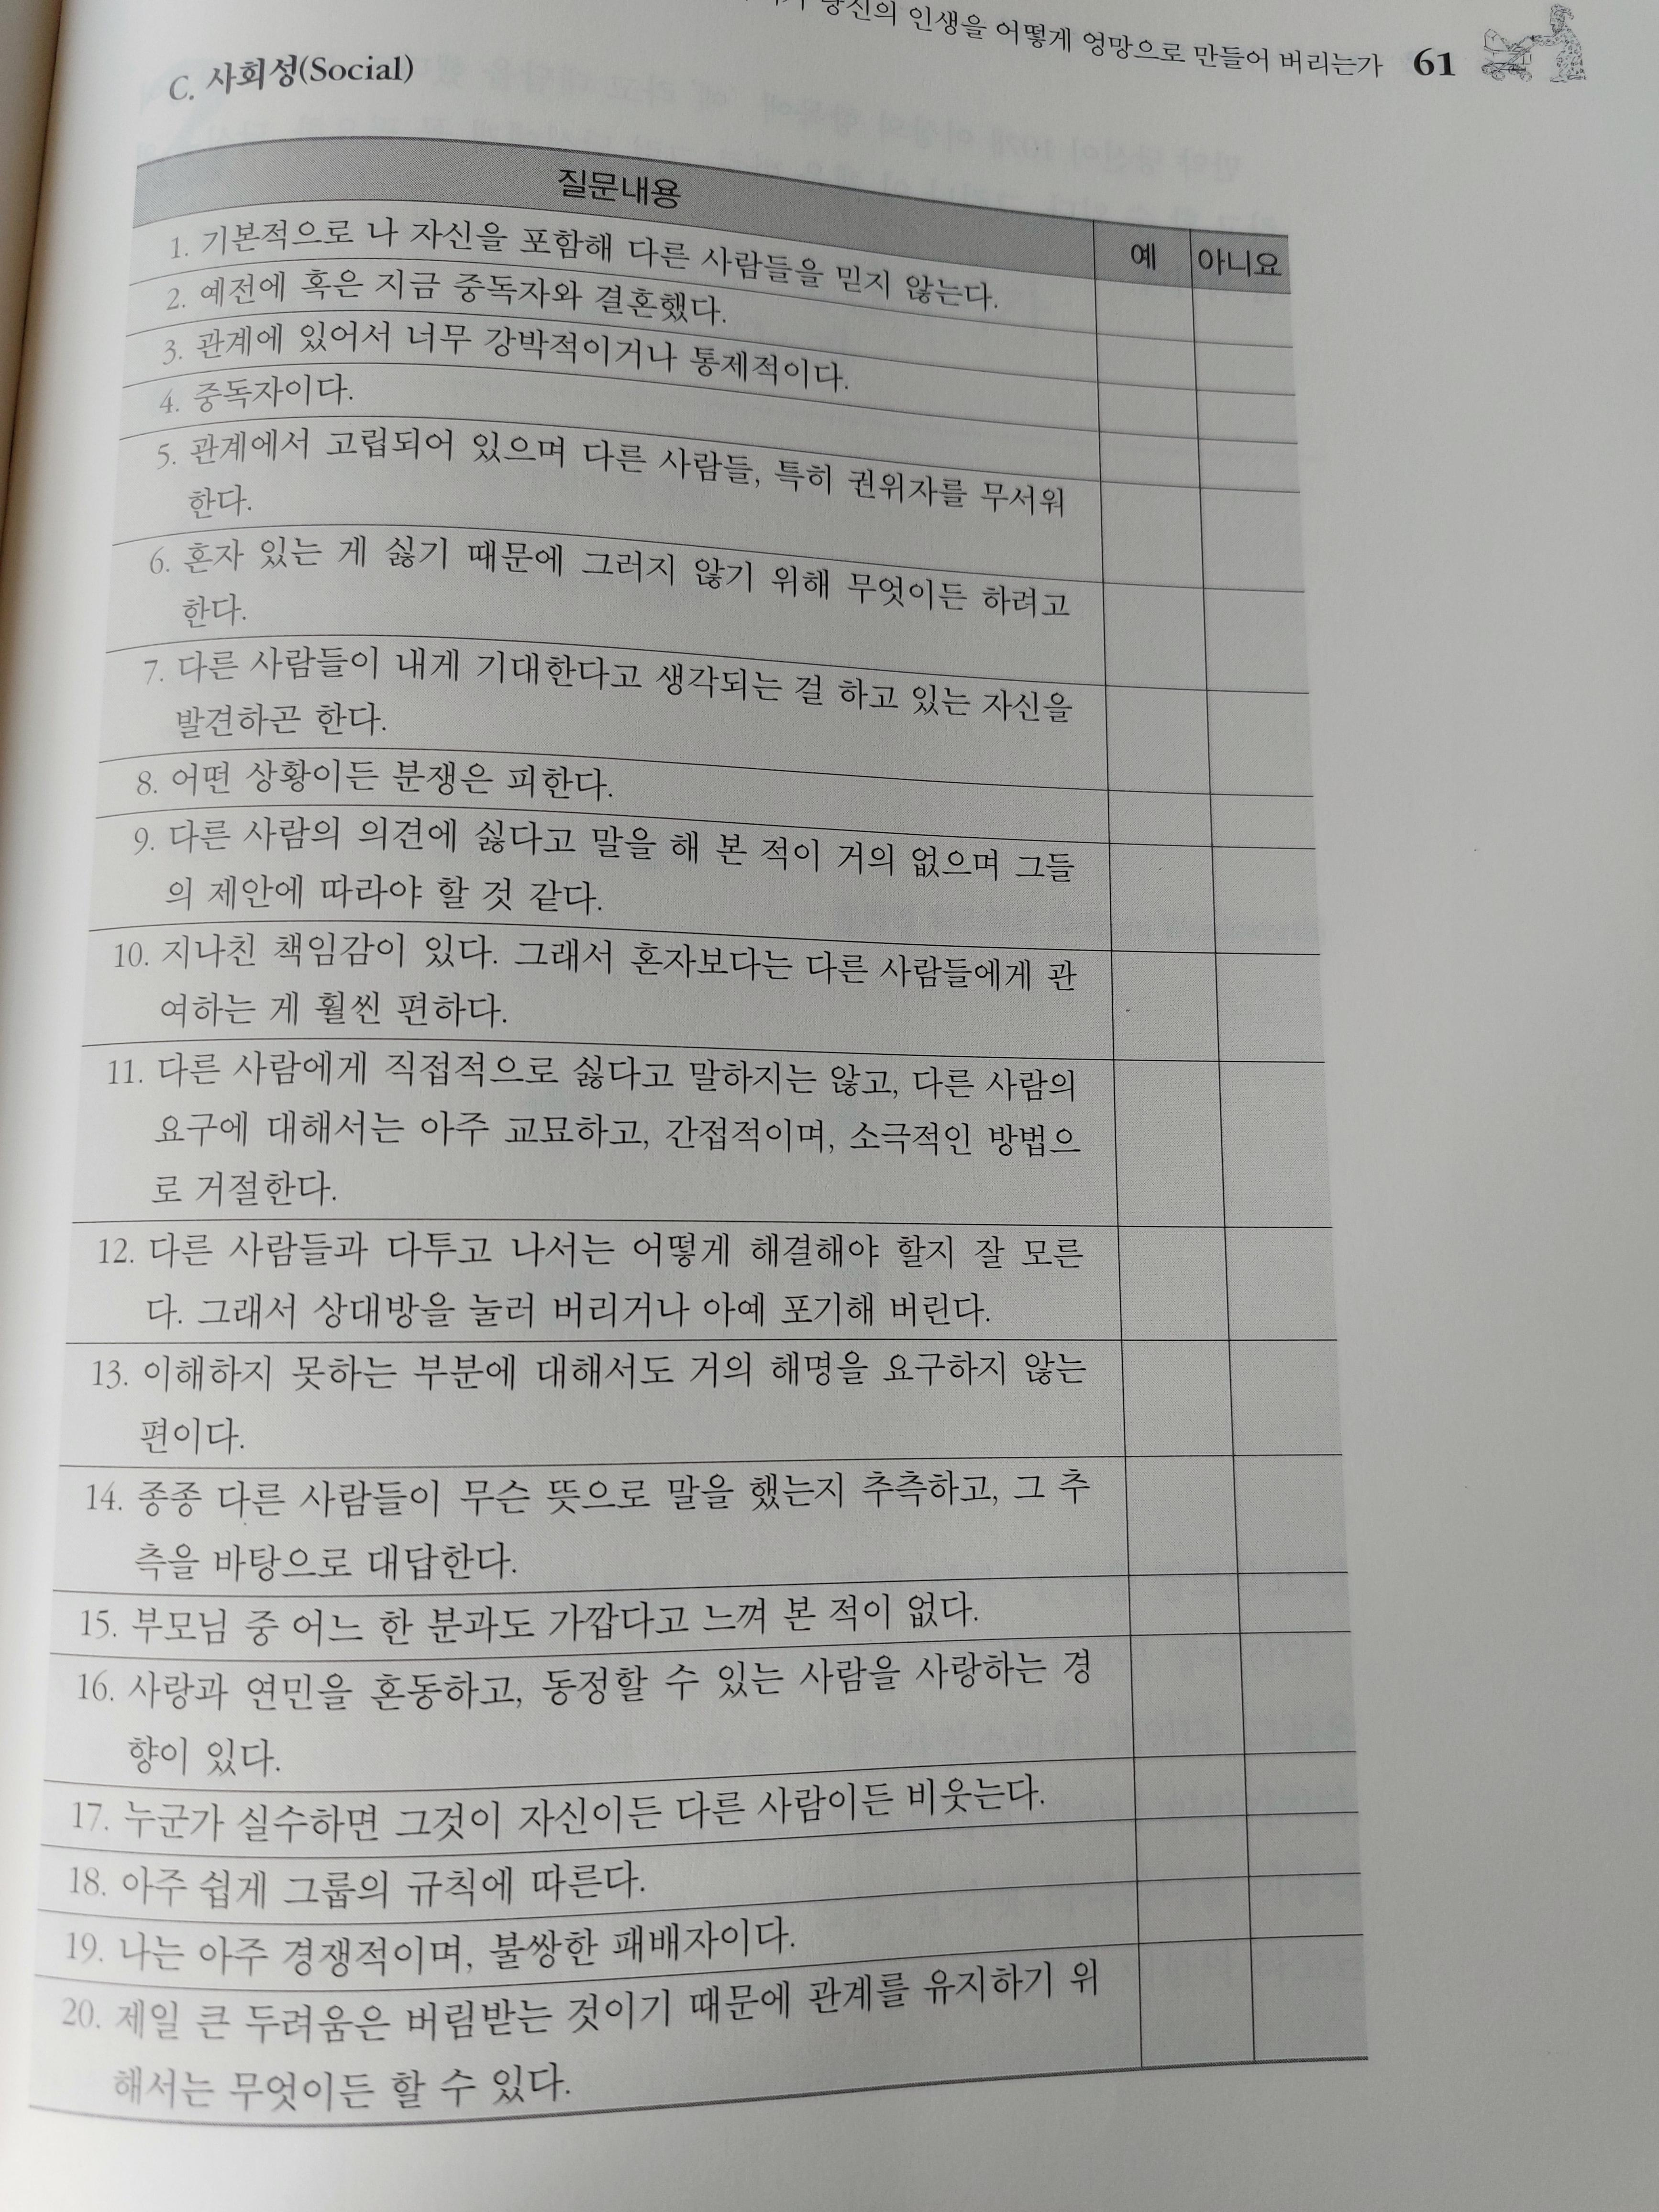 당신의 인생을 어떻게 엉망으로 만들어 버리는가 61
C. 사회성(Social)
질문내용 예 아니요
1. 기본적으로 나 자신을 포함해 다른 사람들을 믿지 않는다.
2. 예전에 혹은 지금 중독자와 결혼했다.
3. 관계에 있어서 너무 강박적이거나 통제적이다.
4. 중독자이다.
5. 관계에서 고립되어 있으며 다른 사람들, 특히 권위자를 무서워
한다.
6. 혼자 있는 게 싫기 때문에 그러지 않기 위해 무엇이든 하려고
한다.
7. 다른 사람들이 내게 기대한다고 생각되는 걸 하고 있는 자신을
발견하곤 한다.
8. 어떤 상황이든 분쟁은 피한다.
9. 다른 사람의 의견에 싫다고 말을 해 본 적이 거의 없으며 그들
의 제안에 따라야 할 것 같다.
10. 지나친 책임감이 있다. 그래서 혼자보다는 다른 사람들에게 관
여하는 게 훨씬 편하다.
11. 다른 사람에게 직접적으로 싫다고 말하지는 않고, 다른 사람의
요구에 대해서는 아주 교묘하고, 간접적이며, 소극적인 방법으
로 거절한다.
12. 다른 사람들과 다투고 나서는 어떻게 해결해야 할지 잘 모른
다. 그래서 상대방을 눌러 버리거나 아예 포기해 버린다.
13. 이해하지 못하는 부분에 대해서도 거의 해명을 요구하지 않는
편이다.
14. 종종 다른 사람들이 무슨 뜻으로 말을 했는지 추측하고, 그 추
측을 바탕으로 대답한다.
15. 부모님 중 어느 한 분과도 가깝다고 느껴 본 적이 없다.
16. 사랑과 연민을 혼동하고, 동정할 수 있는 사람을 사랑하는 경
향이 있다.
17. 누군가 실수하면 그것이 자신이든 다른 사람이든 비웃는다.
18. 아주 쉽게 그룹의 규칙에 따른다.
19. 나는 아주 경쟁적이며, 불쌍한 패배자이다.
20. 제일 큰 두려움은 버림받는 것이기 때문에 관계를 유지하기 위
해서는 무엇이든 할 수 있다.